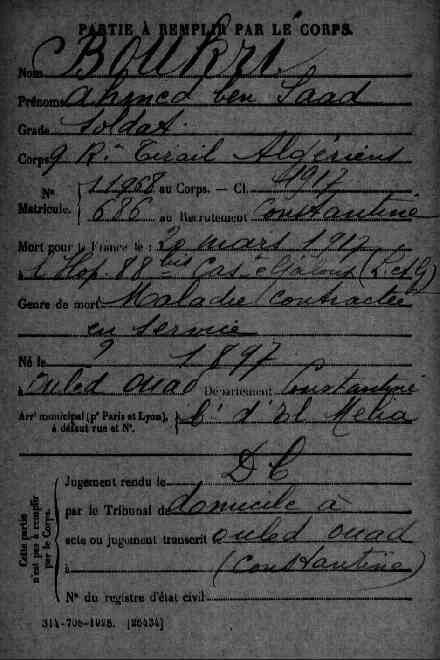 PARTIE À REMPLIR PAR LE CORPS.
Nom Boukri
Prénoms Ahmed ben Saad
Grade Soldat
Corps 9 R.t Tirail Algériens
N° Matricule. 11968 au Corps. — Cl. 1917
686 au Recrutement Constantine
Mort pour la France le : 20 mars 1917
à l'Hop. 88 bis Cas-teljaloux (L. et G)
Genre de mort Maladie contractée
en service
Né le ? 1897
à Ouled Ouad Département Constantine
Arr' municipal (p' Paris et Lyon), à défaut rue et N°. C' d'El Melia
Cette partie n'est pas à remplir par le Corps.
Jugement rendu le D C
par le Tribunal de domicile à
acte ou jugement transcrit ouled ouad
à (Constantine)
N° du registre d'état civil
[26434]